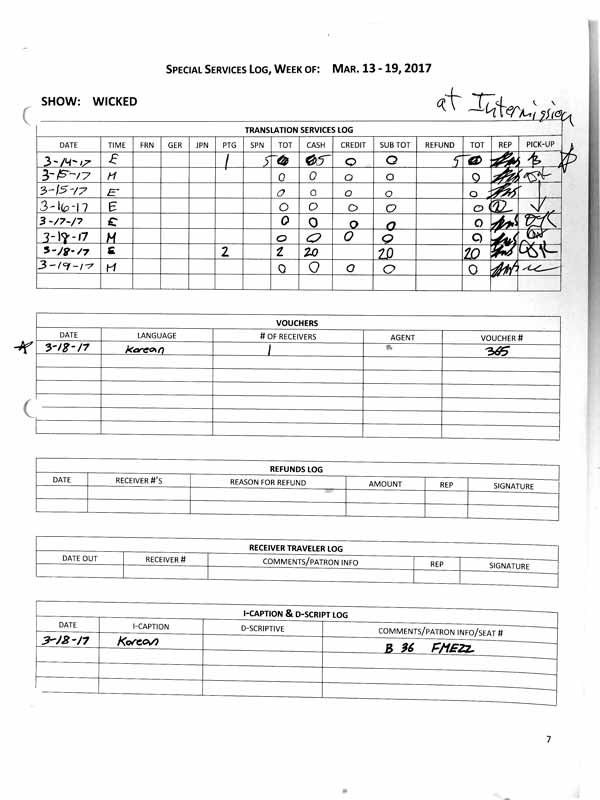 SPECIAL SERVICES LOG, WEEK OF: MAR. 13 - 19, 2017
SHOW: WICKED
at Intermission
TRANSLATION SERVICES LOG
DATE TIME FRN GER JPN PTG SPN TOT CASH CREDIT SUB TOT REFUND TOT REP PICK-UP
3-14-17 E 1 5 5 0 0 5
3-15-17 M 0 0 0 0 0
3-15-17 E 0 0 0 0 0
3-16-17 E 0 0 0 0 0
3-17-17 E 0 0 0 0 0
3-18-17 M 0 0 0 0 0
3-18-17 E 2 2 20 0 20 20
3-19-17 M 0 0 0 0 0
VOUCHERS
DATE LANGUAGE # OF RECEIVERS AGENT VOUCHER #
3-18-17 Korean 1 365
REFUNDS LOG
DATE RECEIVER #'S REASON FOR REFUND AMOUNT REP SIGNATURE
RECEIVER TRAVELER LOG
DATE OUT RECEIVER # COMMENTS/PATRON INFO REP SIGNATURE
I-CAPTION & D-SCRIPT LOG
DATE I-CAPTION D-SCRIPTIVE COMMENTS/PATRON INFO/SEAT #
3-18-17 Korean B 36 FMEZZ
7